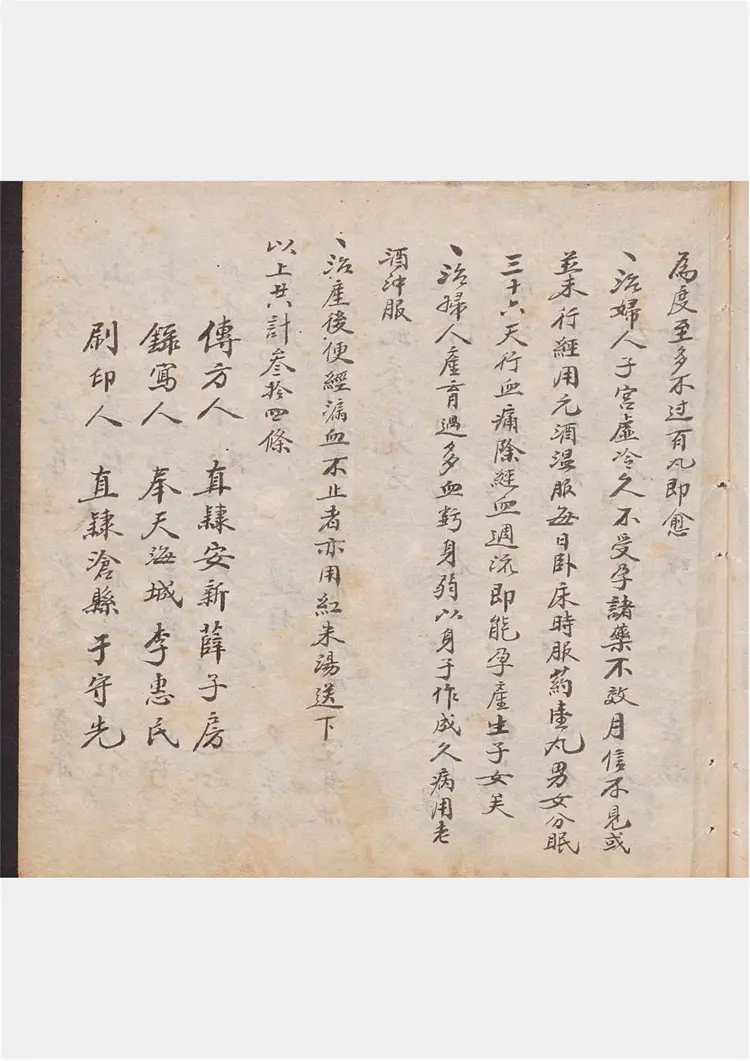 為度至多不过百丸即愈
丶治婦人子宮虛冷久不受孕諸藥不效月信不見或
並未行經用元酒温服每日卧床時服药壹丸男女分眠
三十六天行血痛除經血週流即能孕產生子女矣
丶治婦人產育過多血虧身弱以身子作成久病用老
酒冲服
丶治產後便經漏血不止者亦用紅米湯送下
以上共計叁拾四條
傳方人 直隸安新薛子房
錄寫人 奉天海城李惠民
刷印人 直隸滄縣于守先